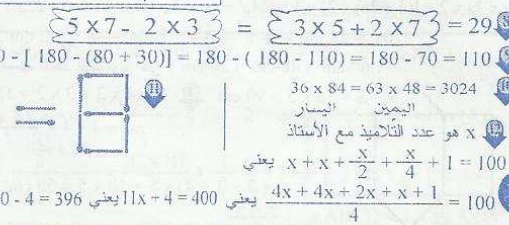 5 x 7 - 2 x 3 = 3 x 5 + 2 x 7 = 29
0 - [ 180 - (80 + 30)] = 180 - ( 180 - 110) = 180 - 70 = 110
36 x 84 = 63 x 48 = 3024 ⑩
اليمين اليسار
⑪
⑫ x هو عدد التلاميذ مع الأستاذ
يعني x + x + x/2 + x/4 + 1 = 100
4x + 4x + 2x + x + 1 / 4 = 100 يعني 11x + 4 = 400 يعني 0 - 4 = 396